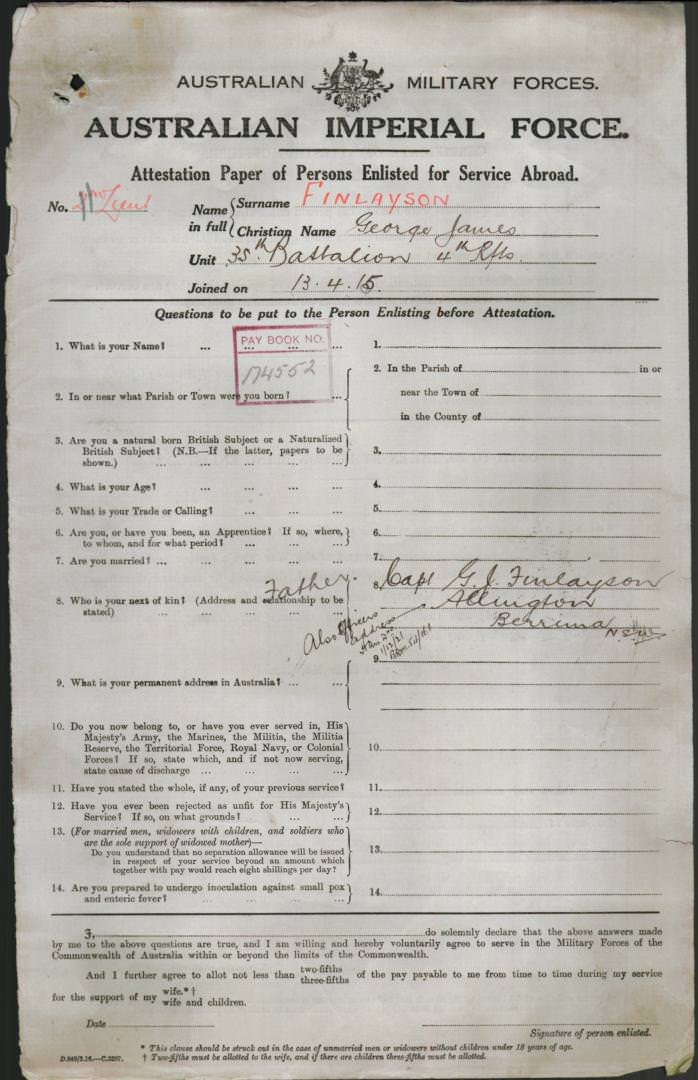 AUSTRALIAN MILITARY FORCES.
AUSTRALIAN IMPERIAL FORCE.
Attestation Paper of Persons Enlisted for Service Abroad.
No. Lieut
Name in full { Surname FINLAYSON
Christian Name George James
Unit 35th Battalion 4th Rfts.
Joined on 13.4.15.
Questions to be put to the Person Enlisting before Attestation.
PAY BOOK NO.
174552
1. What is your Name? ... ... ... ... 1.
2. In or near what Parish or Town were you born? ... 2. In the Parish of in or
near the Town of
in the County of
3. Are you a natural born British Subject or a Naturalized
British Subject? (N.B.—If the latter, papers to be
shown.) ... ... ... ... 3.
4. What is your Age? ... ... ... 4.
5. What is your Trade or Calling? ... ... ... 5.
6. Are you, or have you been, an Apprentice? If so, where,
to whom, and for what period? ... ... ... 6.
7. Are you married? ... ... ... ... 7.
Father.
8. Who is your next of kin? (Address and relationship to be
stated) ... ... ... 8. Capt G. J. Finlayson
Allington
Berrima N.S.W.
Also Officers
address
9. What is your permanent address in Australia? ... ... 9.
10. Do you now belong to, or have you ever served in, His
Majesty's Army, the Marines, the Militia, the Militia
Reserve, the Territorial Force, Royal Navy, or Colonial
Forces? If so, state which, and if not now serving,
state cause of discharge ... ... ... 10.
11. Have you stated the whole, if any, of your previous service? 11.
12. Have you ever been rejected as unfit for His Majesty's
Service? If so, on what grounds? ... ... 12.
13. (For married men, widowers with children, and soldiers who
are the sole support of widowed mother)—
Do you understand that no separation allowance will be issued
in respect of your service beyond an amount which
together with pay would reach eight shillings per day? 13.
14. Are you prepared to undergo inoculation against small pox
and enteric fever? ... ... ... ... 14.
3, do solemnly declare that the above answers made
by me to the above questions are true, and I am willing and hereby voluntarily agree to serve in the Military Forces of the
Commonwealth of Australia within or beyond the limits of the Commonwealth.
And I further agree to allot not less than two-fifths three-fifths of the pay payable to me from time to time during my service
for the support of my wife.*† wife and children.
Date
Signature of person enlisted.
* This clause should be struck out in the case of unmarried men or widowers without children under 18 years of age.
D.849/3.16.—C.3297. † Two-fifths must be allotted to the wife, and if there are children three-fifths must be allotted.